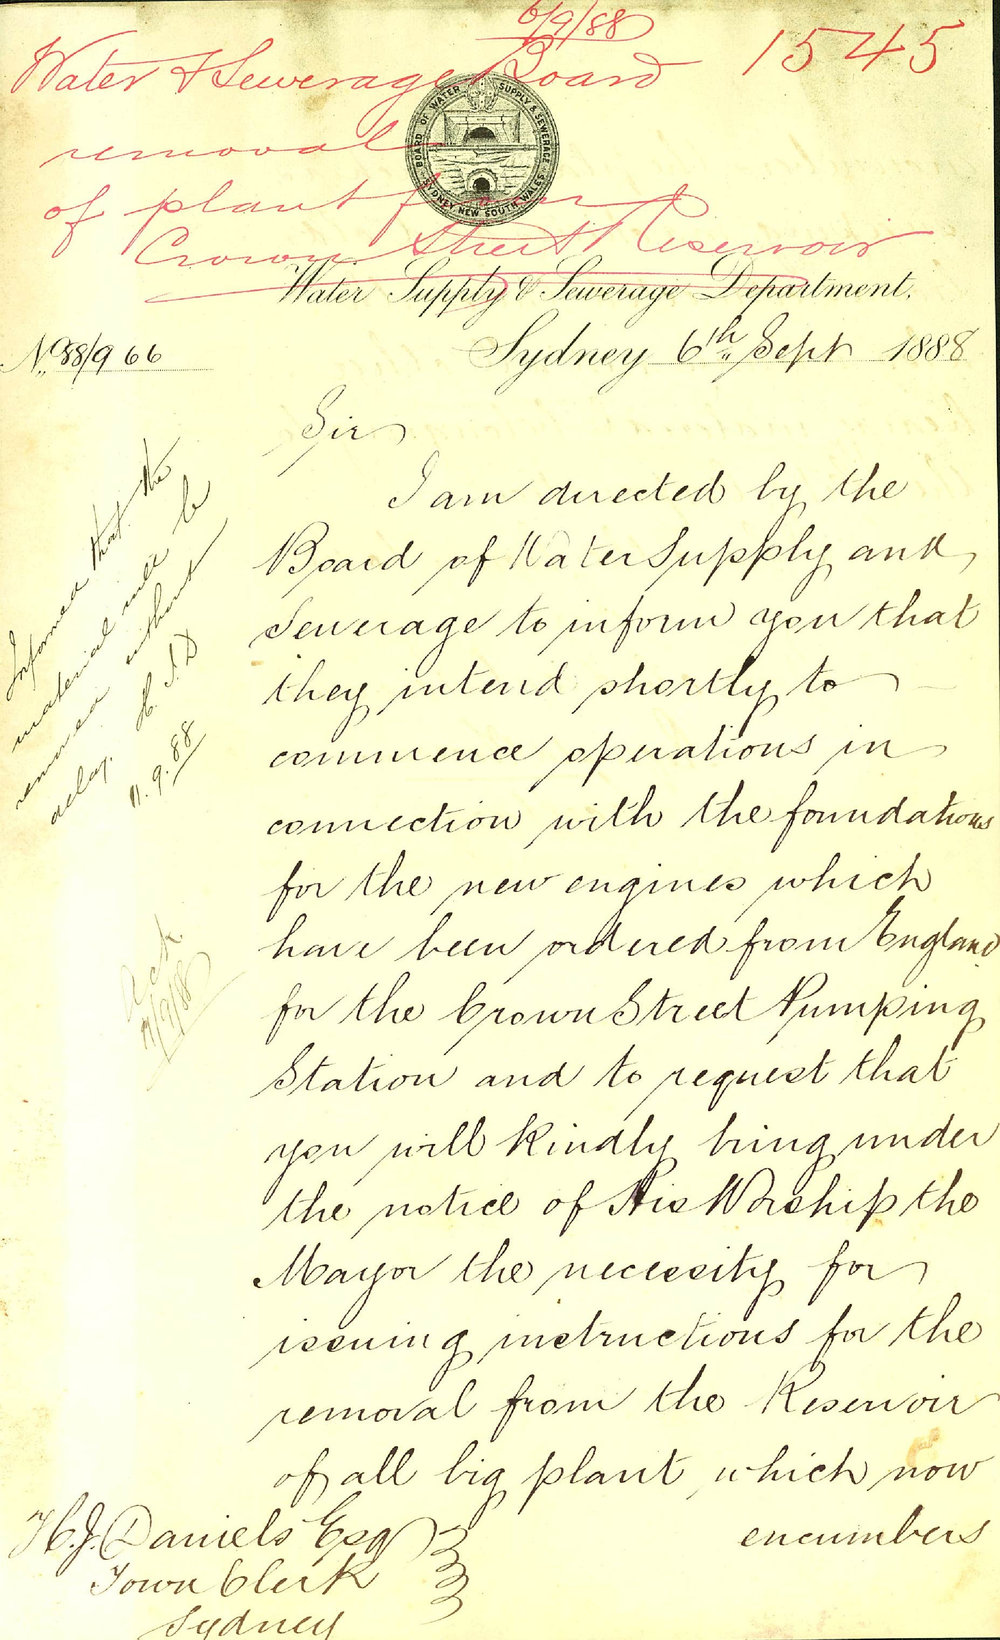 6/9/88
Water & Sewerage Board 1545
removal
of plant from
Crown Street Reservoir
BOARD OF WATER SUPPLY & SEWERAGE
SYDNEY NEW SOUTH WALES
Water Supply & Sewerage Department.
No. 88/966
Sydney 6th Sept 1888
Sir
I am directed by the
Board of Water Supply and
Sewerage to inform you that
they intend shortly to
commence operations in
connection with the foundations
for the new engines which
have been ordered from England
for the Crown Street Pumping
Station and to request that
you will kindly bring under
the notice of His Worship the
Mayor the necessity for
issuing instructions for the
removal from the Reservoir
of all big plant, which now
encumbers
H.J. Daniels Esq
Town Clerk
Sydney
Informed that the
material will be
removed without
delay. H.J.D
11.9.88
Ack.